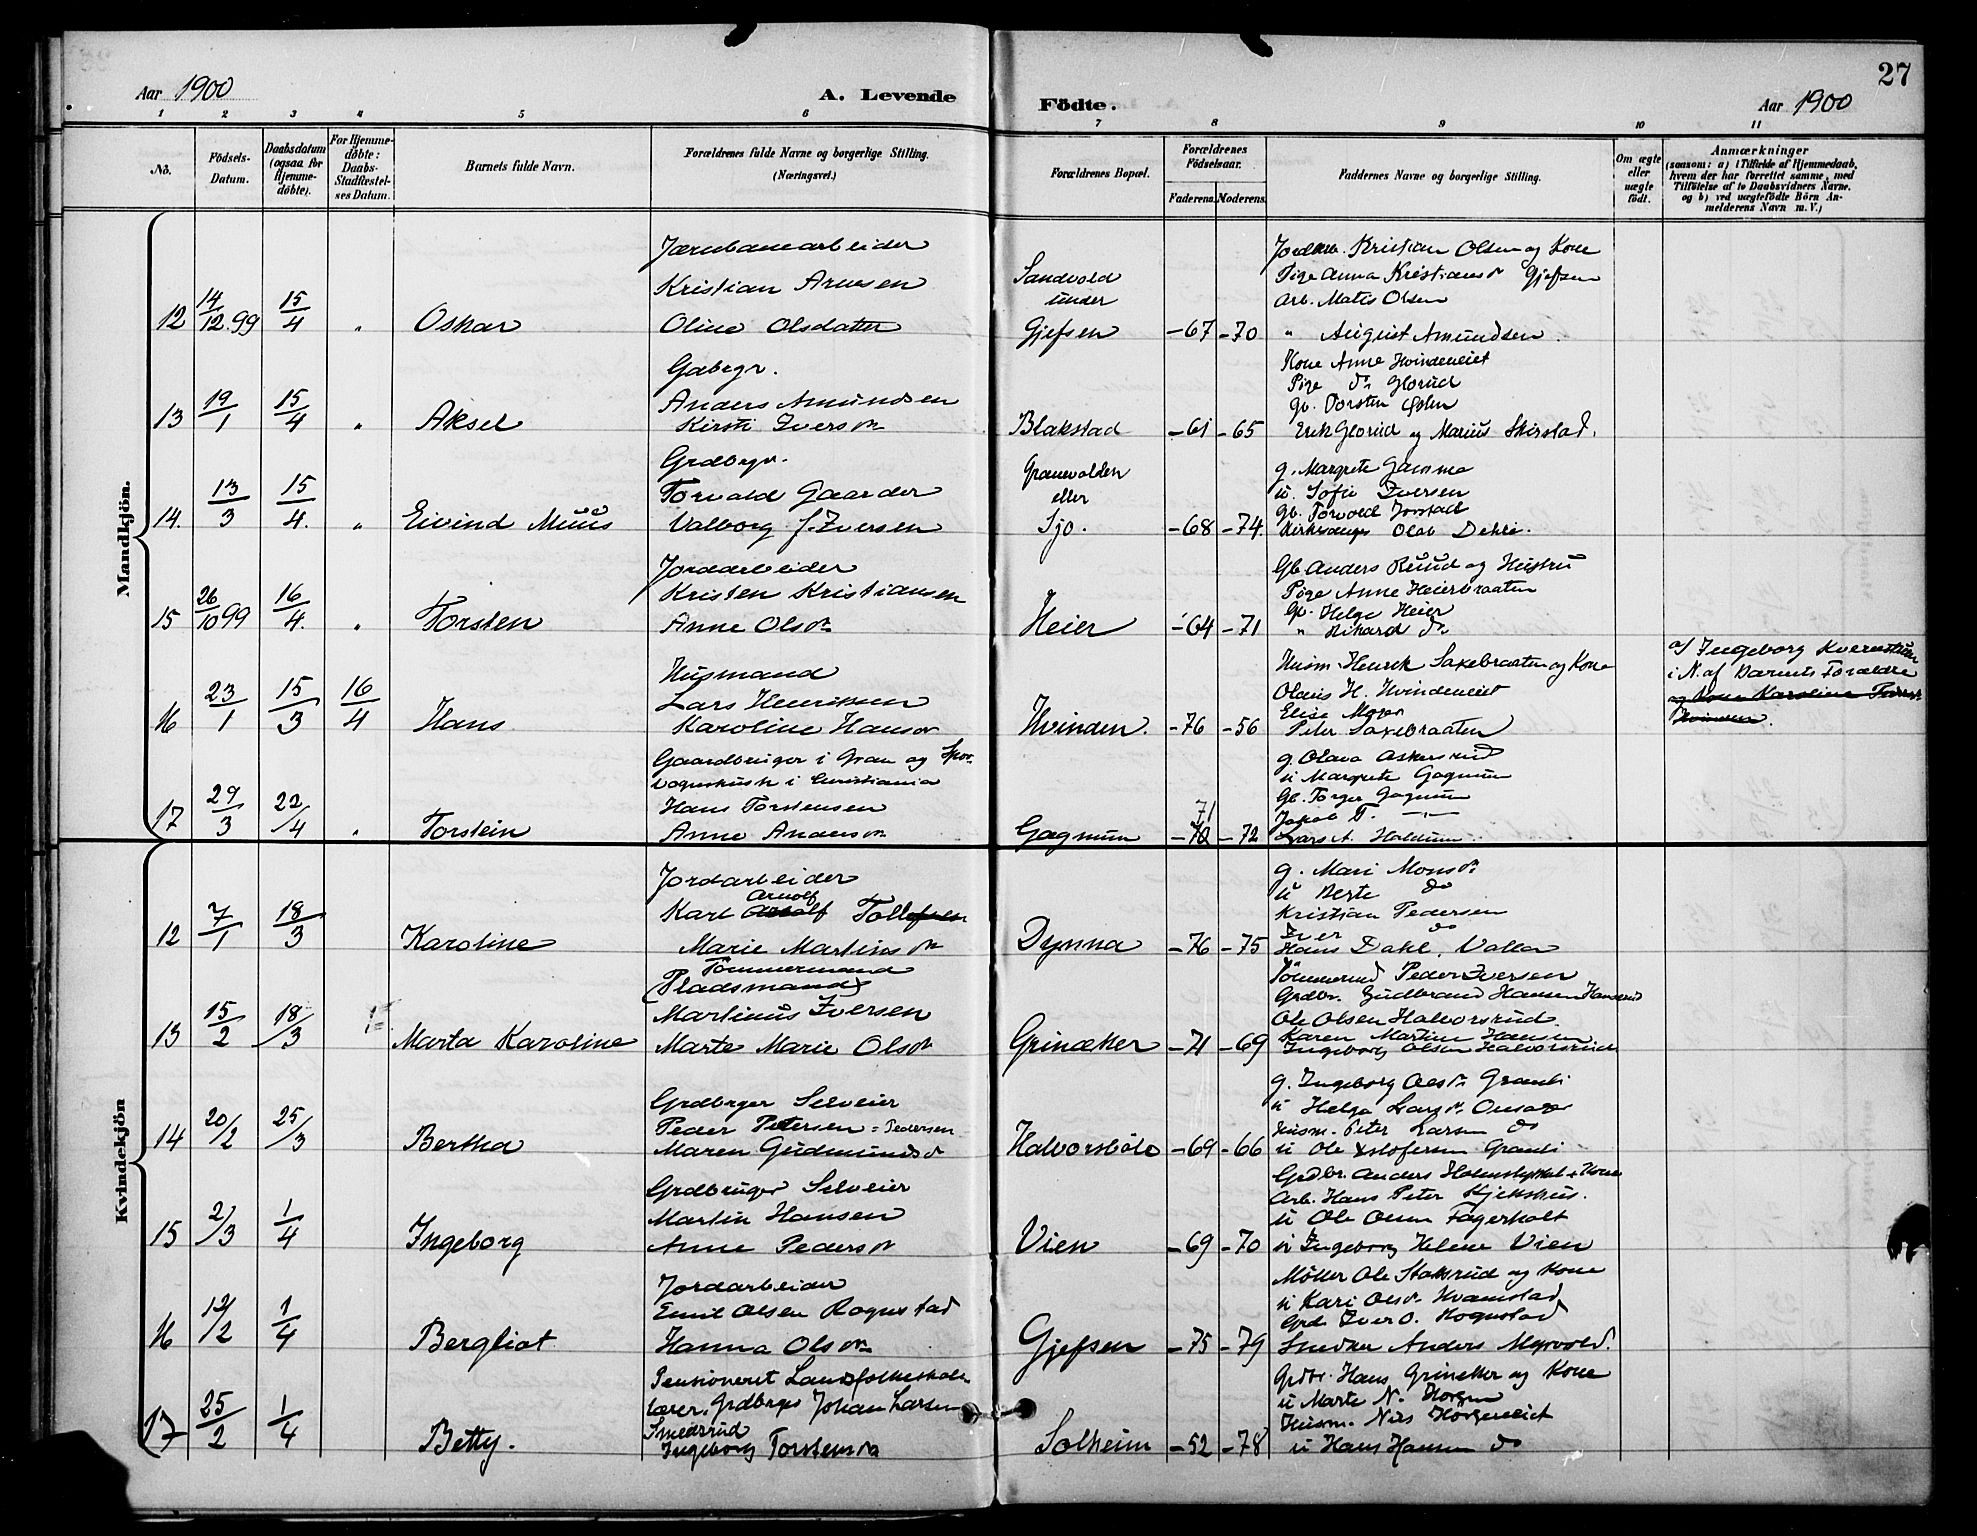 27
Aar 1900
A. Levende
Födte.
Aar 1900
1 2 3 4 5 6 7 8 9 10 11
No.
Födsels-Datum.
Daabsdatum (ogsaa for Hjemmedøbte).
For Hjemmedøbte: Daabs-Stadfæstelses Datum.
Barnets fulde Navn.
Forældrenes fulde Navne og borgerlige Stilling. (Næringsvei.)
Forældrenes Bopæl.
Forældrenes Födselsaar.
Faderens. Moderens.
Faddernes Navne og borgerlige Stilling.
Om ægte eller uægte født.
Anmærkninger
(saasom: a) i Tilfælde af Hjemmedaab, hvem der har forrettet samme, med Tilföielse af to Daabsvidners Navne. og b) ved uægtefödte Börn Anmelderens Navn m. V.)
Mandkjön.
Jærnbanearbeider
Kristian Arnesen
12 14/12.99 15/4 " Oskar Oline Olsdatter
Sandvold
under
Gjefsen -67 -70
Jordarb. Kristian Olsen og Kone
Pige Anna Kristiansdr Gjefsen
Arb. Matis Olsen
" August Amundsen.
Gaardbrgr.
Anders Amundsen
13 19/1 15/4 " Aksel Kirsti Iversdr
Blakstad -61 -65
Kone Anne Hvindeneiet
Pige do Glorud
Gb. Torsten
Erik Glorud og Marius Skirstad.
Grdbrgr.
Torvald Gaarder
14. 13/3 15/4. " Eivind Muus Valborg J. Iversen
Granevolden
eller
Sjo. -68 -74.
g. Margrete Gamme
u. Sofie Iversen
gb. Torvald Jorstad
Kirkesanger Olav Dehli.
Jordarbeider
Kristen Kristiansen
15 26/10 99 16/4. " Torsten Anne Olsdr
Heier -64 -71
Gb Anders Ruud og Hustru
Pige Anne Heierbraaten
Gb. Helge Heier
" Rikard do
Husmand
Lars Henriksen
16 23/1 15/3 16/4 Hans Karoline Hansdr
Hvinden. -76 -56
Husm. Henrik Saxebraaten og Kone
Olaus H. Hvindeneiet
Elise Moger
Peter Saxebraaten
a/ Ingeborg
i N. af Barnets Forældre
og Kone Karoline
Hvinden.
Gaardbruger i Gran og Spor-
vognskusk i Christiania
Hans Torstensen
17 29/3 22/4 " Torstein Anne Andersdr
Gagnum 71 -70 -72
g. Olava Askersrud
u Margrete Gagnum
Gb. Torger Gagnum
Jakob T. -"-
Lars A. Haldum.
Kvindekjön
Jordarbeider
Arnolf
Karl Tollefsen
12 7/1 18/3 Karoline Marie Martinsdr
Dynna -76 -75
g. Mari Monsdr
u Berte do
Kristian Pedersen
Iver do
Hans Dahl, Valla
Tömmermand
(Pladsmand)
Martinus Iversen
13 15/2 18/3 Marta Karoline Marte Marie Olsdr
Grinæker -71 -69
Tömmermd Peder Iversen
Grdbr. Gudbrand Hansen
Ole Olsen Halvorsrud
Karen Martine Hansen
Ingeborg Olsen Halvorsrud
Grdbrger Selveier
Peder Petersen = Pedersen
14 20/2 25/3 Bertha Maren Gudmundsd
Halvorsböle -69 -66
g. Ingeborg Olsdr Granli
u Helga Larsdr
Husm. Peter Larsen do
u Ole Granli
Grdbruger Selveier
Martin Hansen
15 2/3 1/4 Ingeborg Anne Pedersdr
Vien -69 -70
Grdbr. Anders Holmstykket + Kone
Arb. Hans Peter Kjekshus.
u Ole Olsen Fagerholt
u Ingeborg Helene Vien
Jordarbeider
Emil Olsen Rognstad
16 12/2 1/4 Bergliot Hanna Olsdr
Gjefsen -75 -79
Möller Ole Staksrud og Kone
u Kari Olsdr Hvamstad
Grd. Iver O. Rognstad
Snedker Anders Myrvold.
Pensioneret Landsfolkeskole-
lærer, Grdbrger Johan Larsen
Smedsrud
17 25/2 1/4 Betty. Ingeborg Torstensdr
Solheim -52 -78
Grdbr. Hans Grinæker og Kone
u Marte N. Horgen
Husm. Nils Horgeneiet
u Hans Hansen do